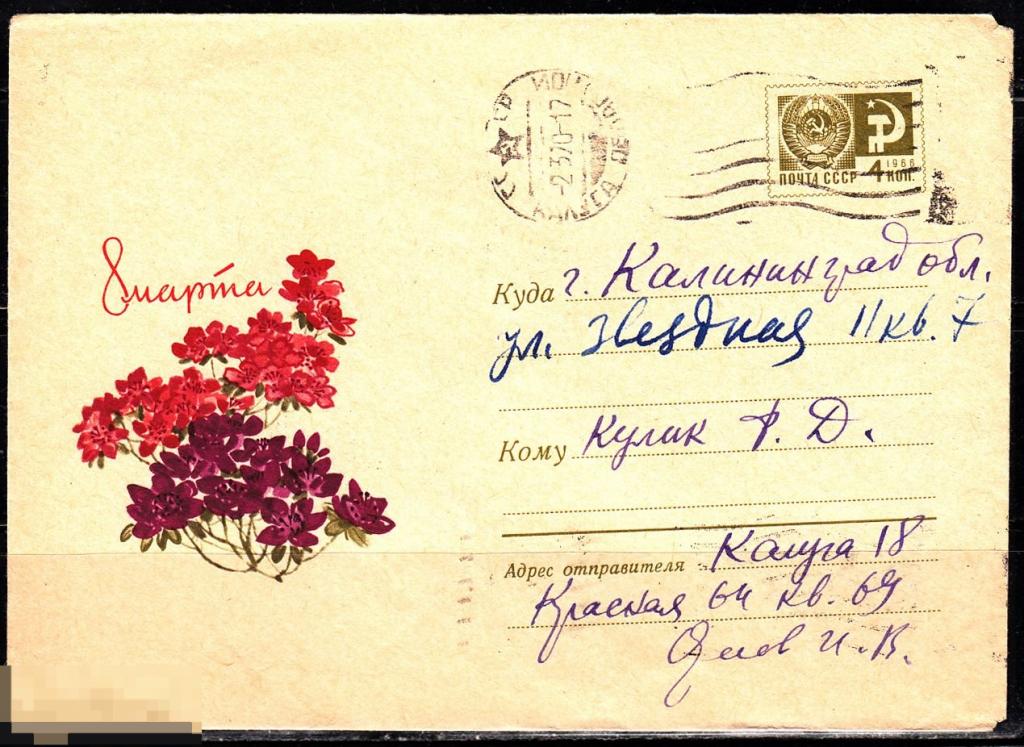 8 марта
КАЛУГА
-2 3 70-17
ПОЧТА СССР 4 КОП.
1966
Куда г. Калининград обл.
ул. Звездная 11 кв. 7
Кому Кулик Ф. Д.
Адрес отправителя Калуга 18
Красная 64 кв. 69
И. В.